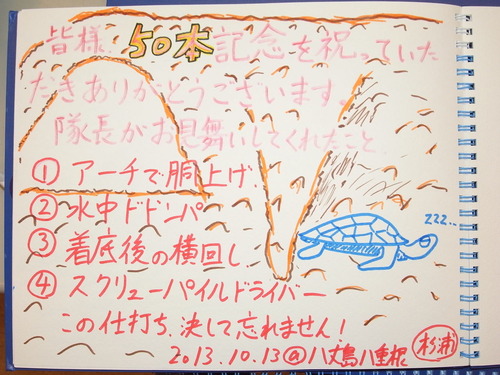 皆様、50本記念を祝っていた
だきありがとうございます。
隊長がお見舞いしてくれたこと
① アーチで胴上げ
② 水中ドドンパ
③ 着底後の横回し
④ スクリューパイルドライバー
この仕打ち、決して忘れません!
zzz..
2013.10.13@八丈島八重根
杉浦